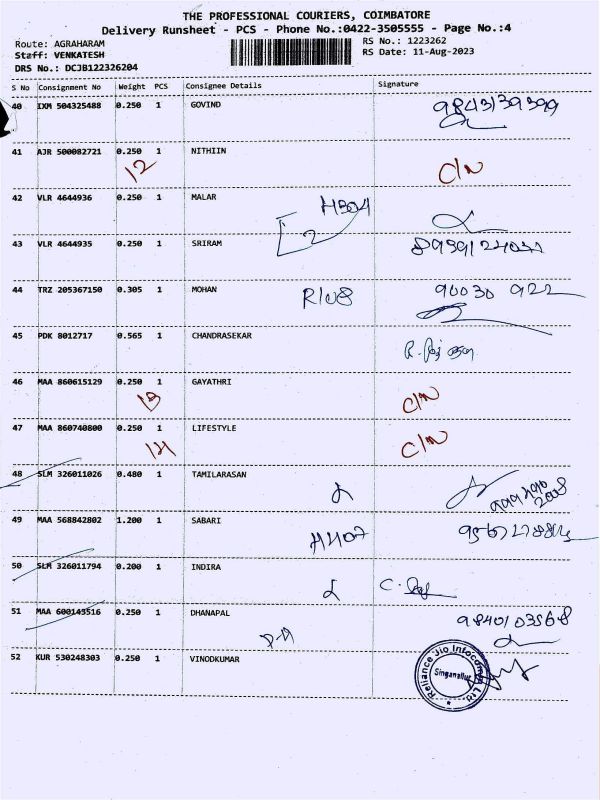 THE PROFESSIONAL COURIERS, COIMBATORE
Delivery Runsheet - PCS - Phone No.:0422-3505555 - Page No.:4
Route: AGRAHARAM
Staff: VENKATESH
DRS No.: DCJB122326204
RS No.: 1223262
RS Date: 11-Aug-2023
S No Consignment No Weight PCS Consignee Details Signature
40 IXM 504325488 0.250 1 GOVIND 9843139399
41 AJR 500082721 0.250 1 NITHIIN
12 C/N
42 VLR 4644936 0.250 1 MALAR H304
2
43 VLR 4644935 0.250 1 SRIRAM
44 TRZ 205367150 0.305 1 MOHAN R108 90030 922
45 PDK 8012717 0.565 1 CHANDRASEKAR
46 MAA 860615129 0.250 1 GAYATHRI
C/N
47 MAA 860740800 0.250 1 LIFESTYLE
C/N
48 SLM 326011026 0.480 1 TAMILARASAN
49 MAA 568842802 1.200 1 SABARI
H407
50 SLM 326011794 0.200 1 INDIRA
51 MAA 600145516 0.250 1 DHANAPAL 9840103568
52 KUR 530248303 0.250 1 VINODKUMAR
Reliance Jio Infocomm Ltd.
Singanallur